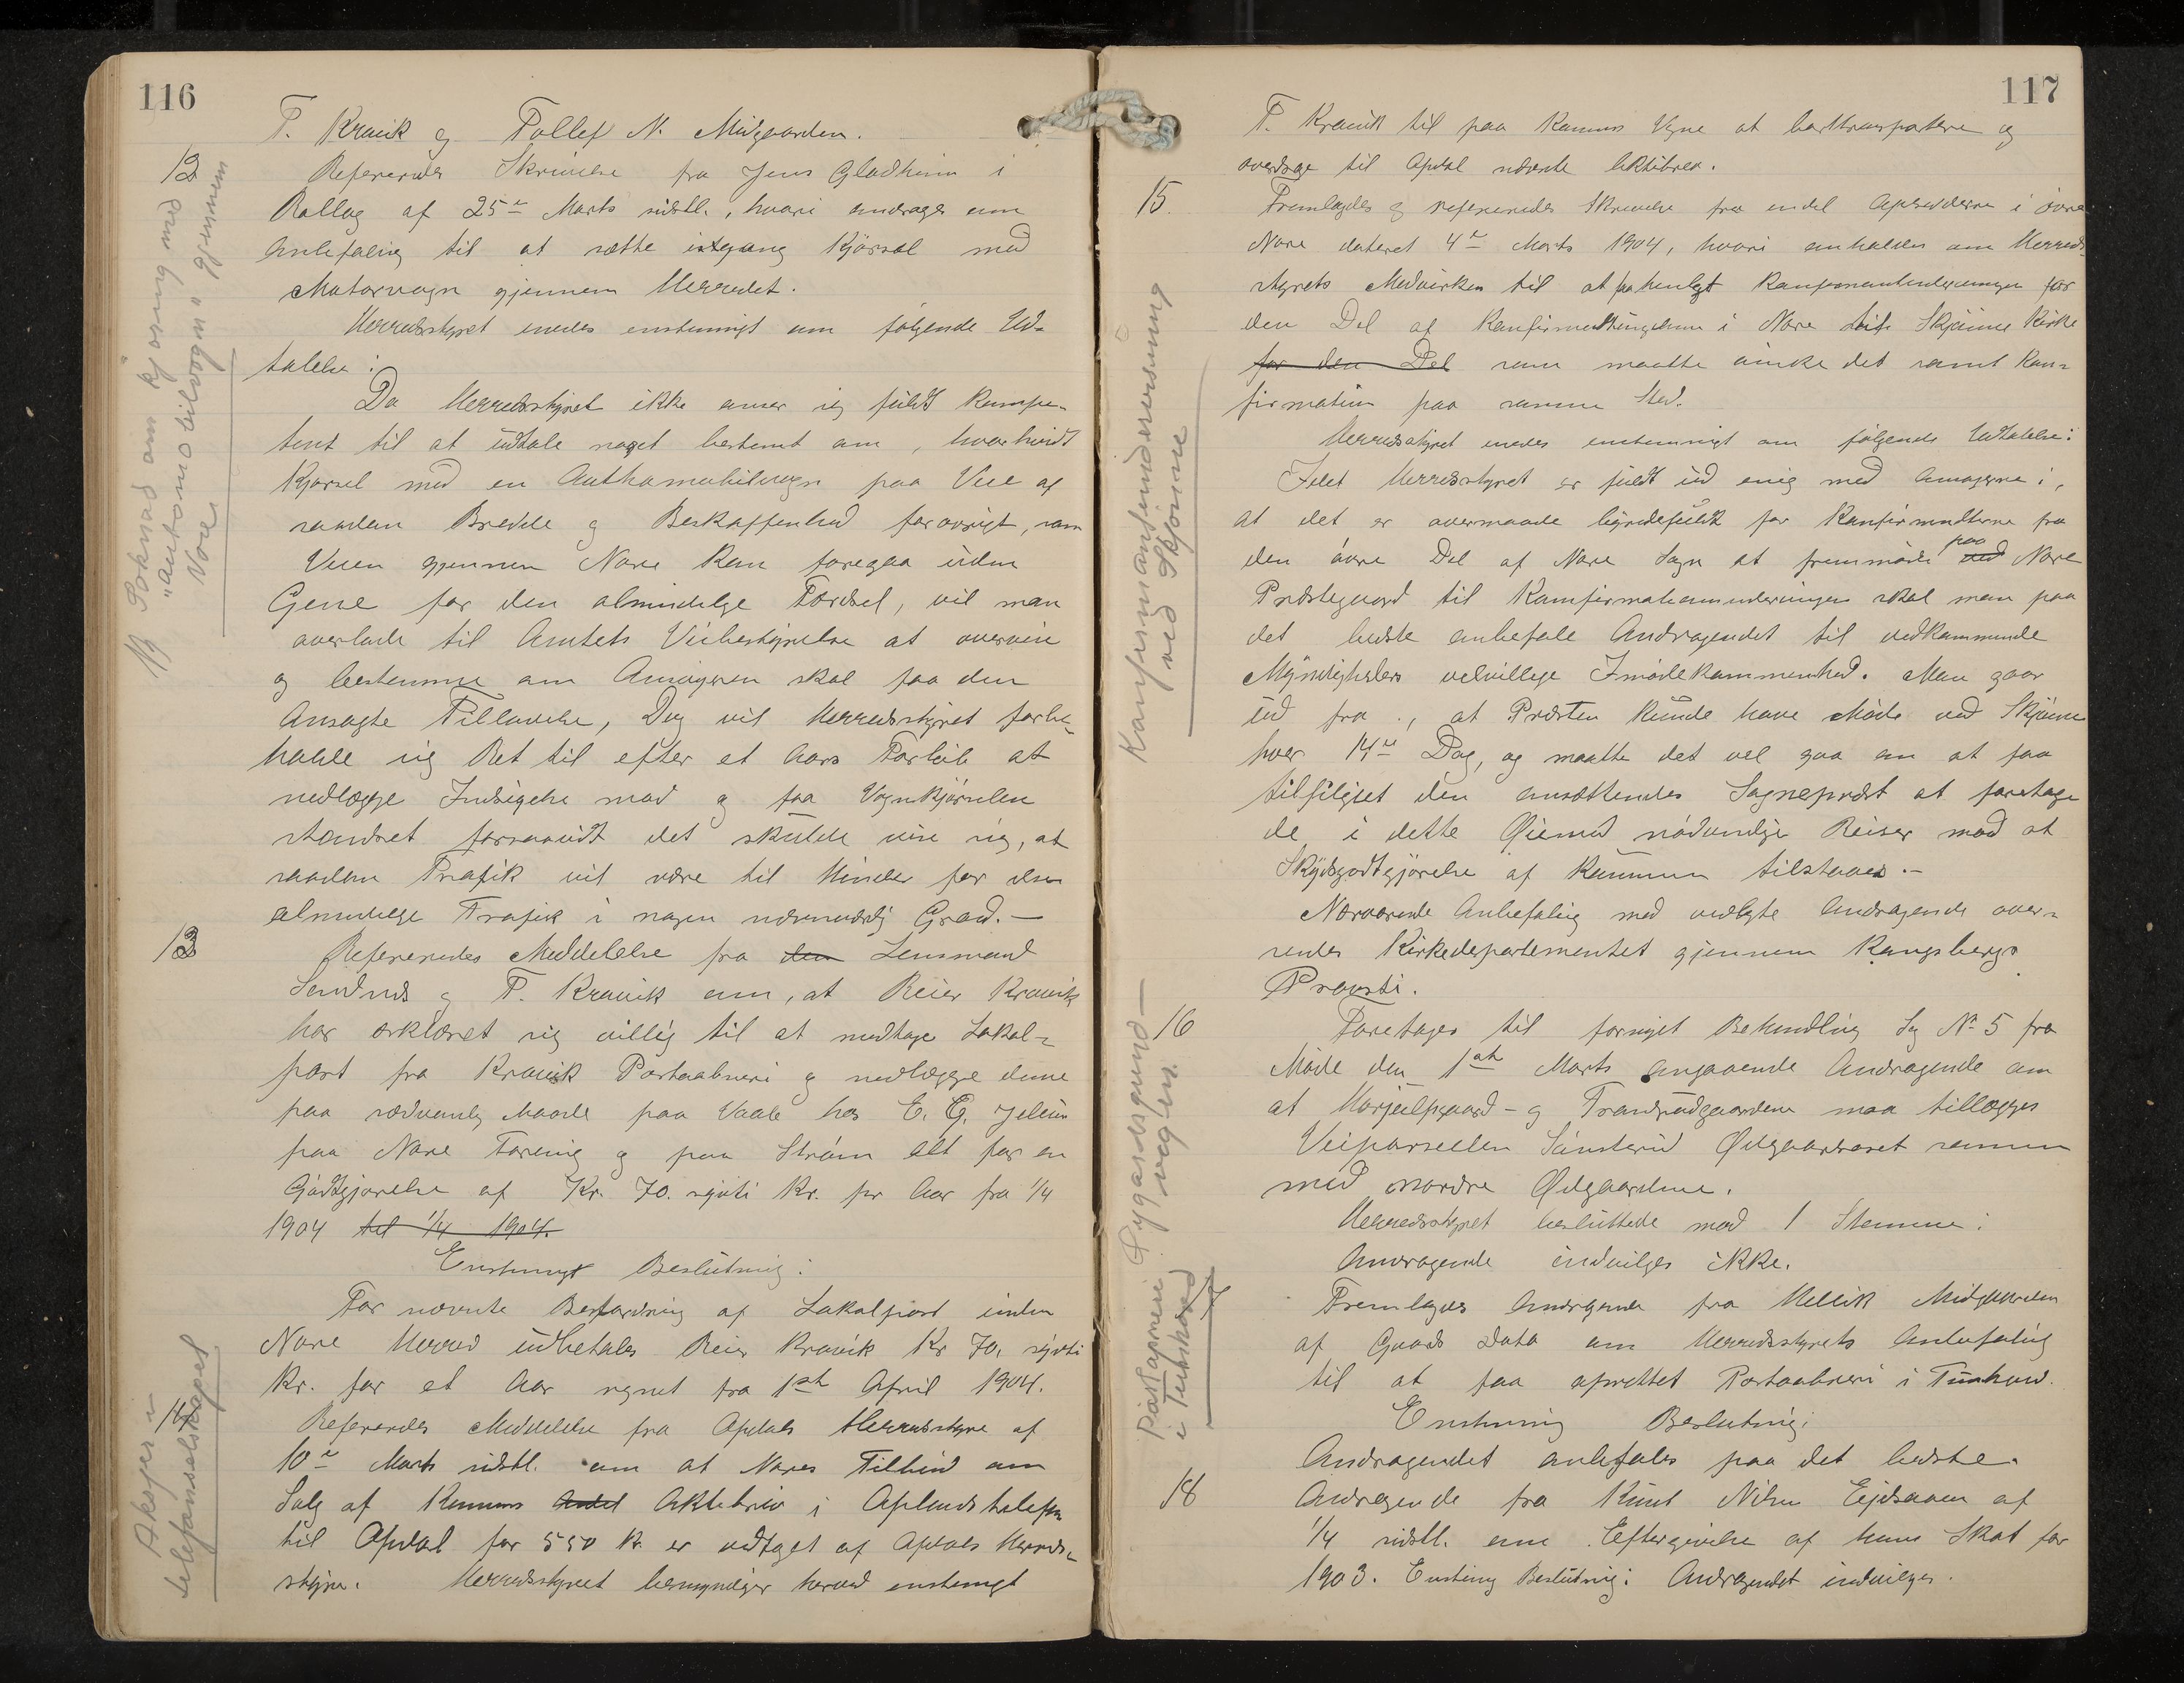 116
T. Kravik og Tollef N. Midgaarden.
12
Refereredes Skrivelse fra Jens Gladheim i
Rollag af 25de Marts sidstl., hvori andrages om
Anbefaling til at sætte istgang Kjørsel med
Motorvogn gjennem Herredet.
Herredsstyret enedes enstemmigt om følgende Ud-
talelse:
Søknad om kjøring med
"automobilvogn" gjennem
Nore
Da Herredsstyret ikke anser sig fuldt kompe-
tent til at udtale noget bestemt om, hvorhvidt
Kjørsel med en Authomobilvogn paa Veie af
saadan Bredde og Beskaffenhed forøvrigt, som
Veien gjennem Nore kan foregaa uden
Gene for den almindelige Færdsel, vil man
overlade til Amtets Veibestyrelse at overveie
og bestemme om Ansøgeren skal faa den
Ansøgte Tilladelse, Dog vil Herredsstyret forbe-
holde sig Ret til efter et Aars Forløb at
nedlægge Indsigelse mod og faa Vognkjørselen
standset forsaavidt det skulde vise sig, at
saadan Trafik vil være til Hinder for den
almindelige Trafik i nogen nævneværdig Grad.—
13
Refereredes Meddelelse fra den Lensmand
og T. Kravik om, at Reier Kravik
har erklæret sig villig til at modtage Lokal-
post fra Kravik Postaabneri og nedlægge denne
paa sædvanlig Maade paa Vaale hos E. G.
paa Nore Forening og paa Strøm alt for en
Godtgjørelse af Kr. 70. sytti Kr. pr Aar fra 1/4
1904 til 1/4 1904.
Enstemmigt Beslutning:
For nævnte Befordring af Lokalpost inden
Nore Herred udbetales Reier Kravik Kr 70, sytti
Kr. for et Aar regnet fra 1ste April 1904.
14
Aksjer i
telefonselskapet
Refereredes Meddelelse fra Opdals Herredsstyre af
10de Marts sidstl. om at Nores Tilbud om
Salg af Kommunens Andel Aktiebrev i Oplandstelefon
til Opdal for 550 Kr. er vedtaget af Opdals Herreds-
styre. Herredsstyret bemyndiger herved enstemmigt
117
T. Kravik til paa Kommunens Vegne at borttransportere og
overdrage til Opdal nævnte Aktiebrev.
15.
Fremlagdes og refereredes Skrivelse fra endel Opsiddere i øvre
Nore dateret 4de Marts 1904, hvori anholdes om Herreds-
styrets Medvirken til at faa henlagt Konfirmantundervisningen for
den Del af Konfirmantungdommen i Nore Skjønne Kirke
for den Del som maatte ønske det samt Kon-
firmation paa samme Sted.
Konfirmantundervisning
ved Skjønne
Herredsstyret enedes enstemmigt om følgende Udtalelse:
Idet Herredsstyret er fuldt ud enig med Ansøgerne i,
at det er overmaade byrdefuldt for Konfirmanterne fra
den øvre Del af Nore Sogn at fremmøde paa ved Nore
Præstegaard til Konfirmationsundervisningen skal man paa
det bedste anbefale Andragendet til vedkommende
Myndigheders velvillige Imødekommenhed. Man gaar
ud fra, at Præsten kunde have Møde ved Skjønne
hver 14de Dag, og maatte det vel gaa an at faa
tilpligtet den ansættendes Sogneprest at foretage
de i dette Øiemed nødvendige Reiser mod at
Skydsgodtgjørelse af Kommunen tilstaaes.—
Nærværende Anbefaling med vedlagte Andragende over-
sendes Kirkedepartementet gjennem Kongsbergs
Provsti.
16
Øygardsgrend—
vegen.
Foretages til fornyet Behandling Sag No 5 fra
Møde den 1ste Marts angaaende Andragende om
at og maa tillægges
Veiparsellen Ødegaardsset sammen
med nordre Ødegaardene.
Herredsstyret besluttede mod 1 Stemme:
Andragende indvilges ikke.
17
Poståpneri
i Tunhovd
Fremlagdes Andragende fra Hellik Midgaarden
af Gaards Dato om Herredsstyrets Anbefaling
til at faa oprettet Postaabneri i Tunhovd.
Enstemmig Beslutning:
Andragendet anbefales paa det bedste.
18
Andragende fra Knut Nilsen af
1/4 sidstl. om Eftergivelse af hans Skat for
1903. Enstemmig Beslutning: Andragendet indvilges.